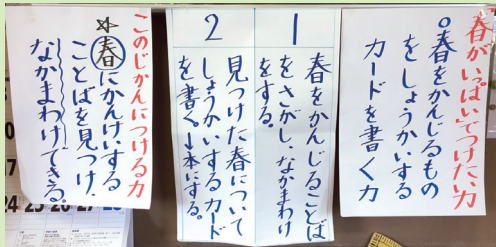 「春がいっぱい」でつけたい力
○春をかんじるもの
をしょうかいする
カードを書く力
1
春をかんじることば
をさがし、なかまわけ
をする。
2
見つけた春について
しょうかいするカード
を書く。→本にする。
このじかんにつける力
☆春にかんけいする
ことばを見つけ、
なかまわけできる。
24 25 26 27 28